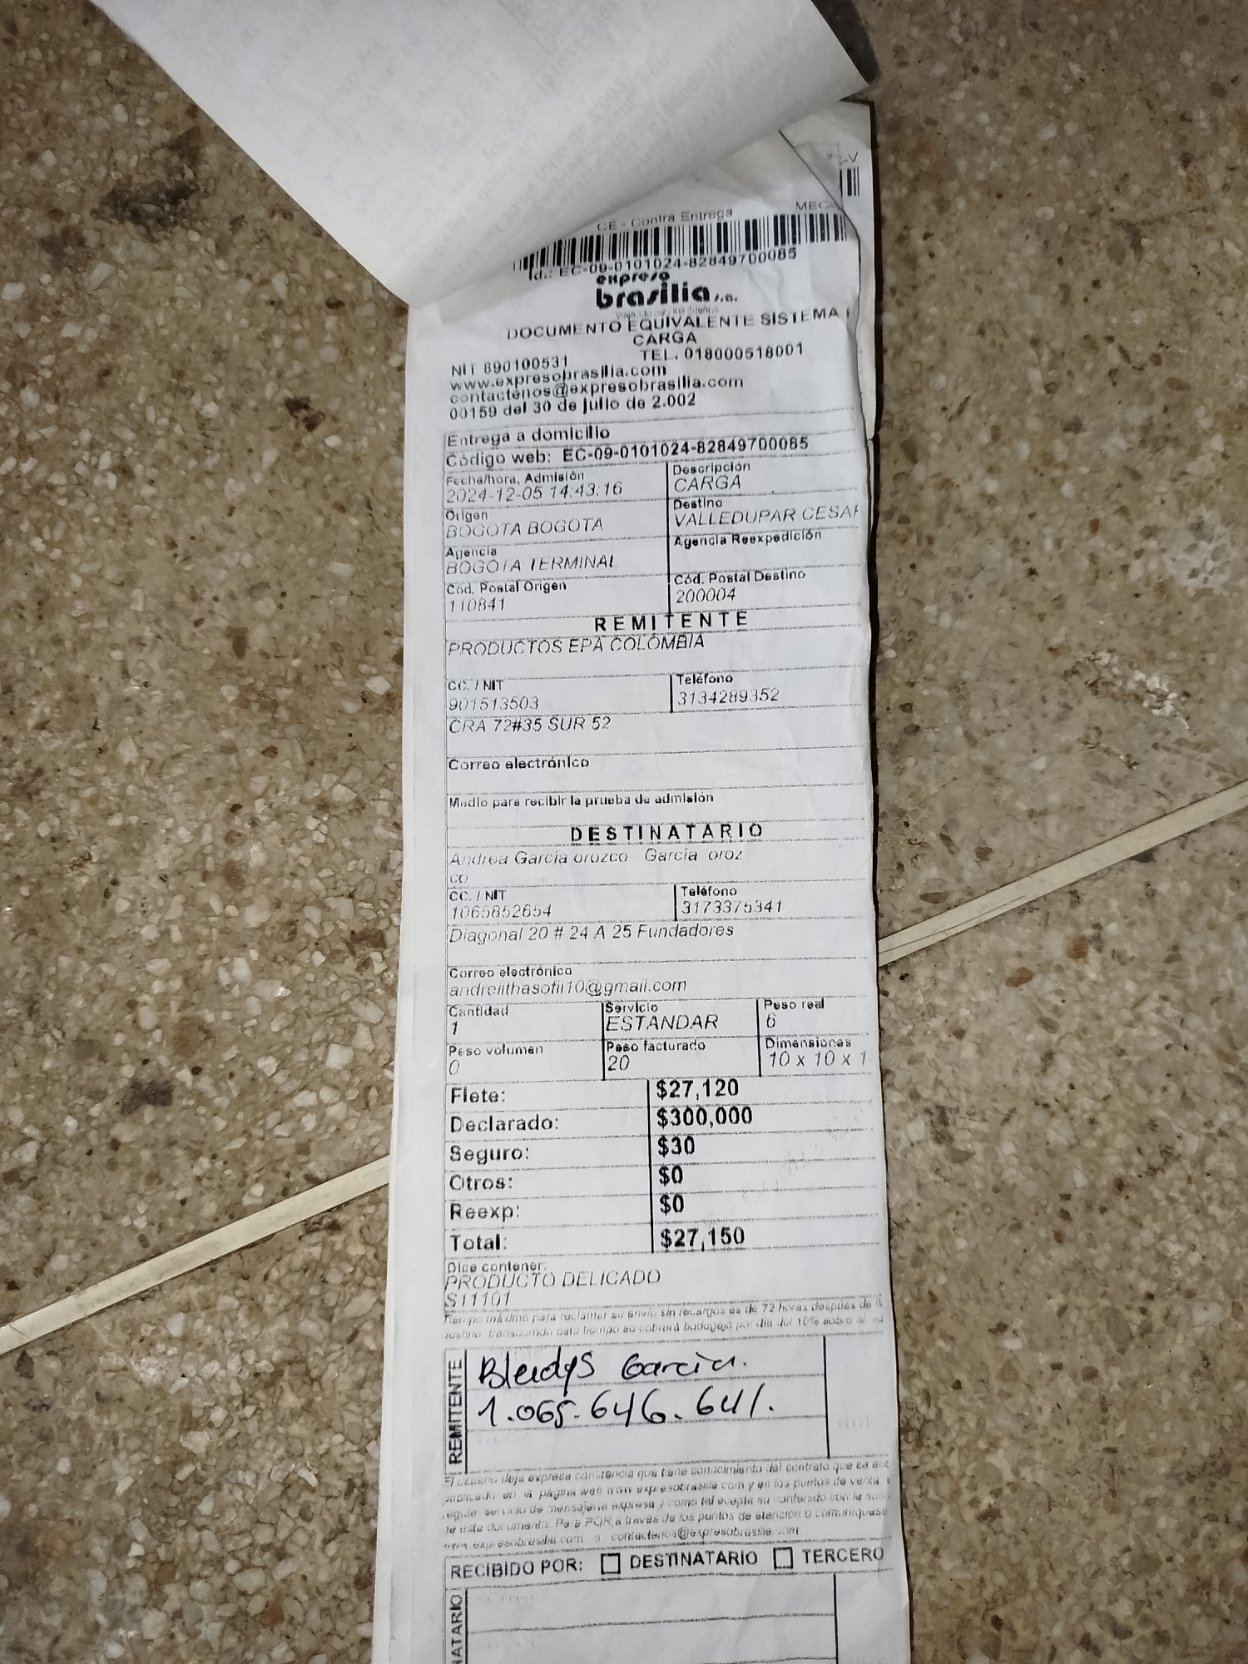 CE - Contra Entrega MEC-
Id.: EC-09-0101024-82849700085
expreso
brasilia s.a.
DOCUMENTO EQUIVALENTE SISTEMA
CARGA
NIT 890100531 TEL. 018000518001
www.expresobrasilia.com
contactenos@expresobrasilia.com
00159 del 30 de julio de 2.002
Entrega a domicilio
Código web: EC-09-0101024-82849700085
Fecha/hora, Admisión Descripción
2024-12-05 14:43:16 CARGA
Origen Destino
BOGOTA BOGOTA VALLEDUPAR CESAR
Agencia Agencia Reexpedición
BOGOTA TERMINAL
Cód. Postal Origen Cód. Postal Destino
110841 200004
REMITENTE
PRODUCTOS EPA COLOMBIA
CC. / NIT Teléfono
901513503 3134289352
CRA 72#35 SUR 52
Correo electrónico
Medio para recibir la prueba de admisión
DESTINATARIO
Andrea Garcia orozco Garcia oroz
co
CC. / NIT Teléfono
1065852654 3173375341
Diagonal 20 # 24 A 25 Fundadores
Correo electrónico
andreiithasofii10@gmail.com
Cantidad Servicio Peso real
1 ESTANDAR 6
Peso volumen Peso facturado Dimensiones
0 20 10 x 10 x 1
Flete: $27,120
Declarado: $300,000
Seguro: $30
Otros: $0
Reexp: $0
Total: $27,150
Dice contener:
PRODUCTO DELICADO
S11101
Tiempo máximo para reclamar su envío sin recargos es de 72 horas después de
destino, transcurrido este tiempo se cobrará bodegaje por día del 10% sobre el
REMITENTE
Bleidys Garcia.
1.065.646.641.
El usuario deja expresa constancia que tiene conocimiento del contrato que se
publicado en la página web www.expresobrasilia.com y en los puntos de venta
regula servicio de mensajería expresa y como tal acepta su contenido con la
de este documento. Para PQR a través de los puntos de atención o comuníquese
www.expresobrasilia.com o contactenos@expresobrasilia.com
RECIBIDO POR: DESTINATARIO TERCERO